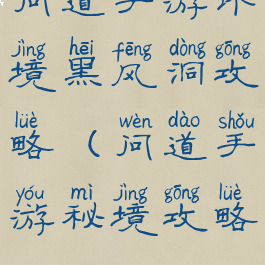 问道手游环
jìng hēi fēng dòng gōng
境黑风洞攻
lüè wèn dào shǒu
略(问道手
yóu mì jìng gōng lüè
游秘境攻略